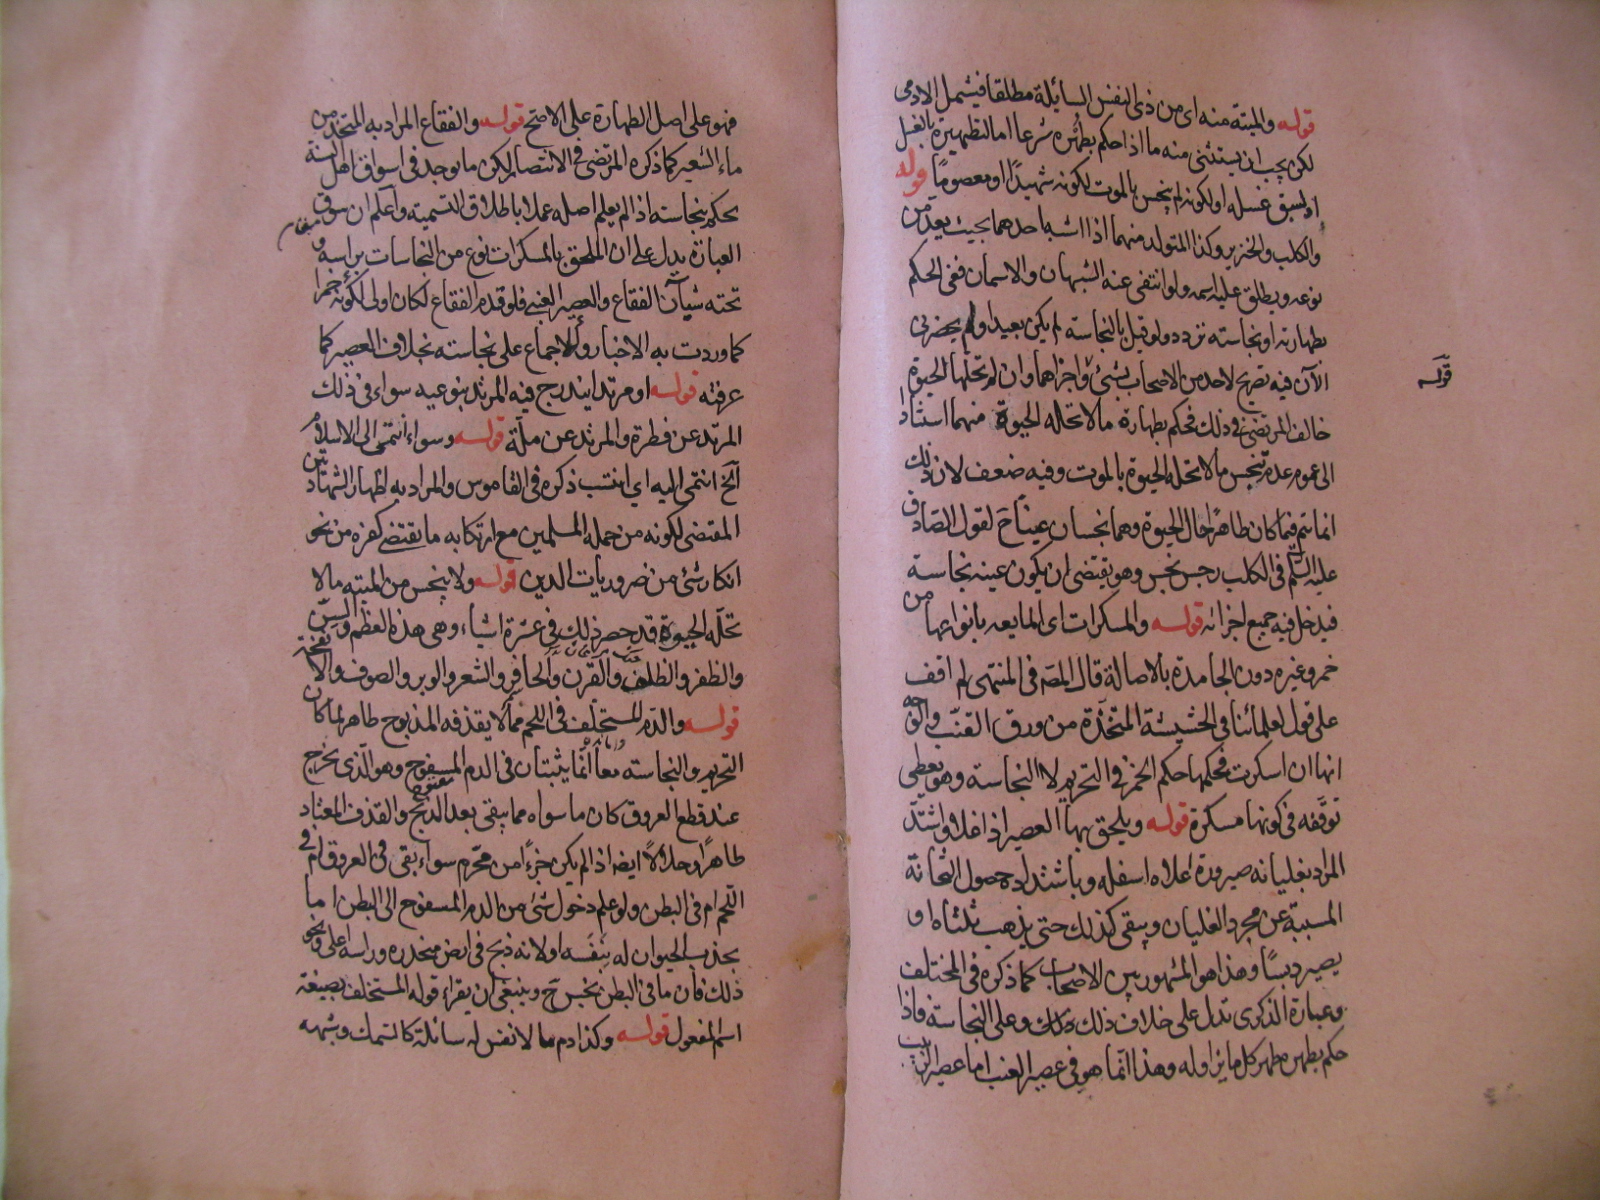 قوله والميتة منه اى من ذى النفس السائلة مطلقا فيشمل الادمى
لكن يجب ان يستثنى منه ما اذا حكم بطهره شرعا اما لتطهيره بالغسل
او لسبق غسله او لكونه لم ينجس بالموت لكونه شهيدًا او معصومًا قوله
والكلب والخنزير وكذا المتولد منهما اذا اشبه احدهما بحيث يعد من
نوعه ويطلق عليه اسمه ولو انتفى عنه الشبهان والاسمان ففى الحكم
بطهارته او نجاسته تردد ولو قيل بالنجاسة لم يكن بعيدا ولم يحضرنى
الآن فيه تصريح لاحد من الاصحاب بشئ واجزاهما وان لم تحلها الحيوة
خالف المرتضى فى ذلك فحكم بطهارة ما لا تحله الحيوة منهما استنادا
الى عموم عدم تنجس ما لا تحله الحيوة بالموت وفيه ضعف لان ذلك
انما يتم فيما كان طاهرًا حال الحيوة وهما نجسان عينًا ح لقول الصادق
عليه السلم فى الكلب رجس نجس وهو يقتضى ان يكون عينه نجاسة
فيدخل فيه جميع اجزائه قوله والمسكرات اى المايعه بانواعها من
خمر وغيره دون الجامدة بالاصالة قال المصه فى المنتهى لم اقف
على قول لعلمائنا فى الحشيشة المتخذة من ورق القنب والوجه
انها ان اسكرت فحكمها حكم الخمر فى التحريم لا النجاسة وهو يعطى
توقفه فى كونها مسكرة قوله ويلحق بها العصير اذا غلا واشتد
المراد بغليانه صيرورة اعلاه اسفله وباشتداده حصول الثخانة
المسببة عن مجرد الغليان ويبقى كذلك حتى يذهب ثلثاه او
يصير دبسًا وهذا هو المشهور بين الاصحاب كما ذكره فى المختلف
وعبارة الذكرى تدل على خلاف ذلك وعلى النجاسة فاذا
حكم بطهره طهر كل ما يزاوله وهذا انما هو فى عصير العنب اما عصير الزبيب
قوله
فهو على اصل الطهارة على الاصح قوله والفقاع المراد به المتخذ من
ماء الشعير كما ذكره المرتضى فى الانتصار لكن ما يوجد فى اسواق اهل السنة
يحكم بنجاسته اذا لم يعلم اصله عملا باطلاق التسمية واعلم ان سوق
العبارة يدل على ان الملحق بالمسكرات نوع من النجاسات براسه و
تحته شيآن الفقاع والعصير العنبى فلو قدم الفقاع لكان اولى لكونه خمرا
كما وردت به الاخبار والاجماع على نجاسته بخلاف العصير كما
عرفته قوله او مرتدا يندرج فيه المرتد بنوعيه سواء فى ذلك
المرتد عن فطرة والمرتد عن ملّة قوله وسواء انتمى الى الاسلام
الخ انتمى اليه اى انتسب ذكره فى القاموس والمراد به اظهار الشهادتين
المقتضى لكونه من جمله المسلمين مع ارتكابه ما يقتضى كفره من نحو
انكار شئ من ضروريات الدين قوله ولا ينجس من الميته ما لا
تحلّه الحيوة قد حصر ذلك فى عشرة اشياء وهى هذه العظم والسن
والظفر والظلف والقرن والحافر والشعر والوبر والصوف والانفخة
قوله والدم المستخلف فى اللحم مما لا يقذفه المذبوح طاهر لما كان
التحريم والنجاسته معا انما يثبتان فى الدم المسفوح وهو الذى يخرج
عند قطع العروق كان ما سواه مما يبقى بعد الذبح والقذف المعتاد
طاهرًا وحلالًا ايضه اذا لم يكن جزءًا من محرم سواء بقى فى العروق ام فى
اللحم ام فى البطن ولو علم دخول شئ من الدم المسفوح الى البطن اما
بجذب الحيوان له بنفسه او لانه ذبح فى ارض منحدره وراسه اعلى ونحو
ذلك فان ما فى البطن نجس ح وينبغى ان يقراء قوله المستخلف بصيغة
اسم المفعول قوله وكذا دم ما لا نفس له سائلة كالسمك وشبهه